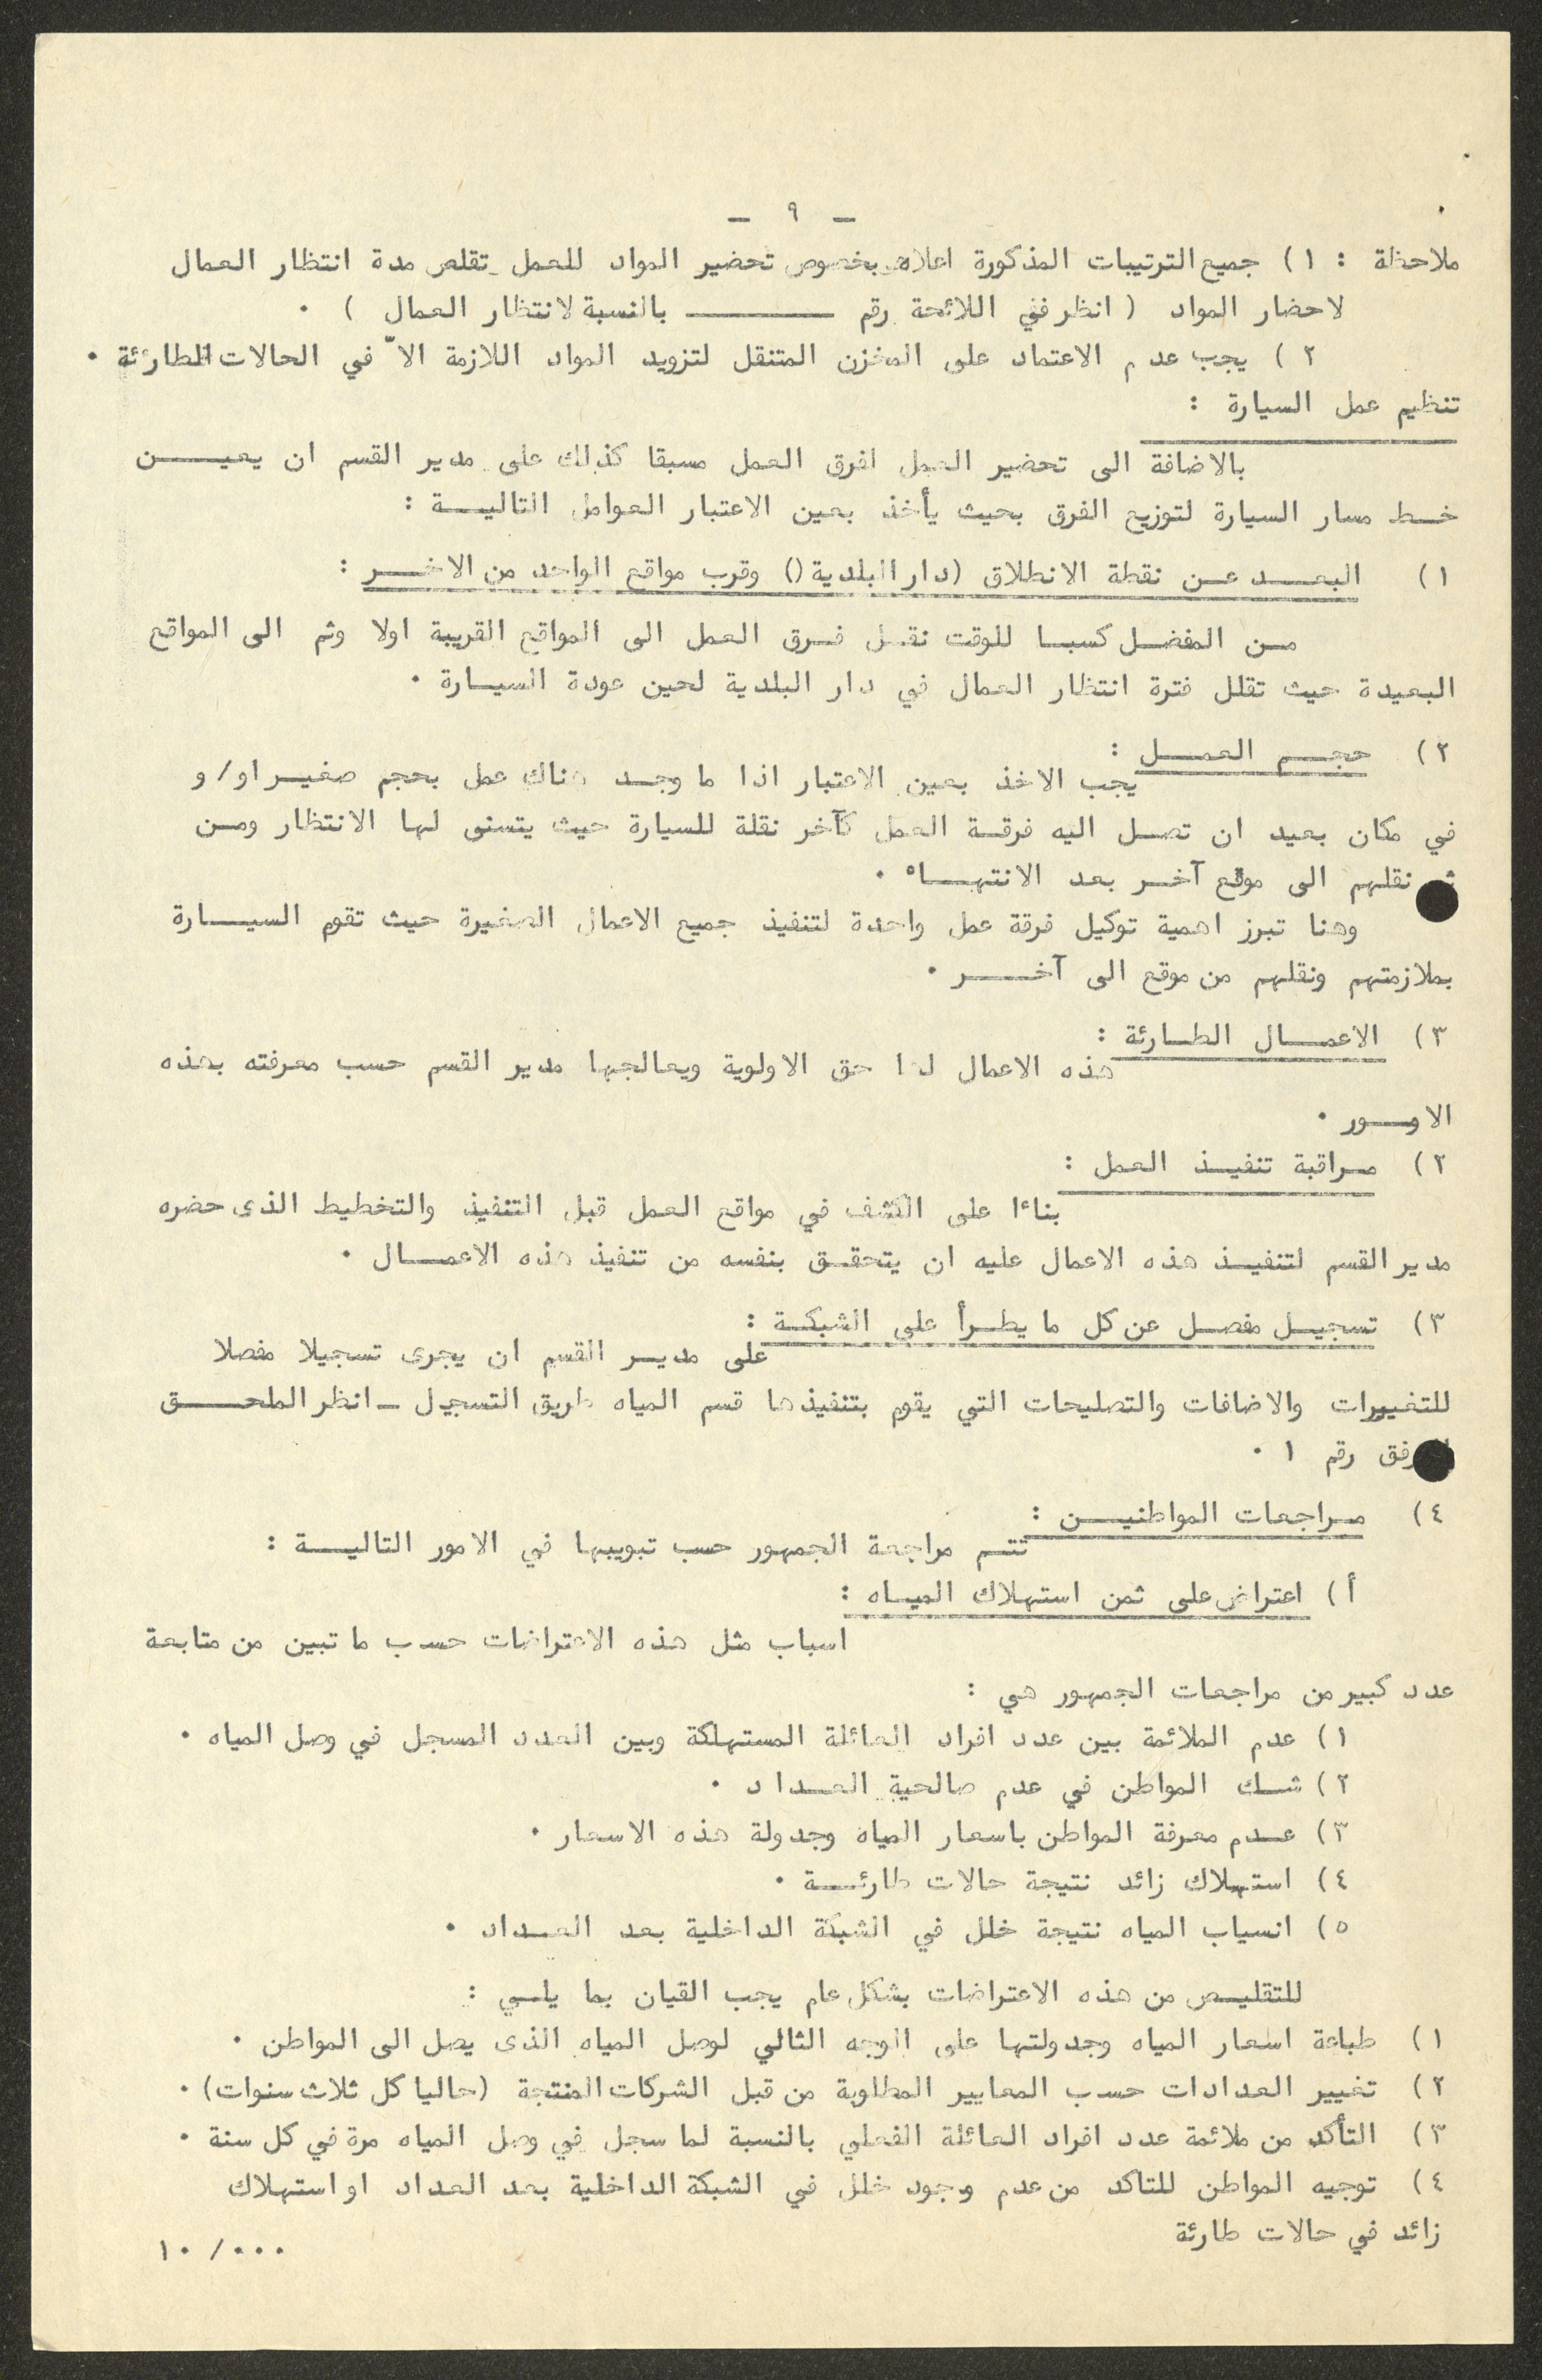 - ٩ -
ملاحظة : ١) جميع الترتيبات المذكورة اعلاه بخصوص تحضير المواد للعمل تقلص مدة انتظار العمال
لاحضار المواد ( انظر في اللائحة رقم ــــــــ بالنسبة لانتظار العمال ) ٠
٢) يجب عدم الاعتماد على المخزن المتنقل لتزويد المواد اللازمة الاّ في الحالات الطارئة ٠
تنظيم عمل السيارة :
بالاضافة الى تحضير العمل لفرق العمل مسبقا كذلك على مدير القسم ان يعيـــن
خـط مسار السيارة لتوزيع الفرق بحيث يأخذ بعين الاعتبار العوامل التاليـــة :
١) البعــد عـن نقطة الانطلاق (دار البلدية () وقرب مواقع الواحد من الاخـــر :
مـن المفضـل كسبـا للوقت نقـل فـرق العمل الى المواقع القريبة اولا وثم الى المواقع
البعيدة حيث تقلل فترة انتظار العمال في دار البلدية لحين عودة السيـارة ٠
٢) حجــم العمــل :
يجب الاخذ بعين الاعتبار اذا ما وجـد هناك عمل بحجم صغيـر او/ و
في مكان بعيد ان تصـل اليه فرقـة العمل كآخر نقلة للسيارة حيث يتسنى لها الانتظار ومـن
ثـ نقلهم الى موقع آخـر بعد الانتهـاء ٠
وهنا تبرز اهمية توكيل فرقة عمل واحدة لتنفيذ جميع الاعمال الصغيرة حيث تقوم السيــارة
بملازمتهم ونقلهم من موقع الى آخـــر ٠
٣) الاعمــال الطـارئة :
هذه الاعمال لها حق الاولوية ويعالجها مدير القسم حسب معرفته بهذه
الاوــور ٠
٢) مـراقبة تنفيـذ العمل :
بناءا على الكشف في مواقع العمل قبل التنفيذ والتخطيط الذى حضره
مدير القسم لتنفيـذ هذه الاعمال عليه ان يتحقـق بنفسه من تنفيذ هذه الاعمــال ٠
٣) تسجيـل مفصـل عن كل ما يطـرأ على الشبكـة :
على مديـر القسم ان يجرى تسجيلا مفصلا
للتغييرات والاضافات والتصليحات التي يقوم بتنفيذها قسم المياه طريق التسجيل ـ انظر الملحـــق
رفق رقم ١ ٠
٤) مـراجعات المواطنيـــن :
تتـم مراجعة الجمهور حسب تبويبها في الامور التاليـــة :
أ ) اعتراض على ثمن استهلاك الميـاه :
اسباب مثل هذه الاعتراضات حسب ما تبين من متابعة
عدد كبير من مراجعات الجمهور هي :
١) عدم الملائمة بين عدد افراد العائلة المستهلكة وبين العدد المسجل في وصل المياه ٠
٢) شـك المواطن في عدم صالحية العـداد ٠
٣) عـدم معرفة المواطن باسعار المياه وجدولة هذه الاسعار ٠
٤) استهلاك زائد نتيجة حالات طارئـــة ٠
٥) انسياب المياه نتيجة خلل في الشبكة الداخلية بعد العـداد ٠
للتقليـص من هذه الاعتراضات بشكل عام يجب القيان بما يلـي :
١) طباعة اسعار المياه وجدولتها على الوجه الثالي لوصل المياه الذى يصل الى المواطن ٠
٢) تغيير العدادات حسب المعايير المطلوبة من قبل الشركات المنتجة (حاليا كل ثلاث سنوات) ٠
٣) التأكد من ملائمة عدد افراد العائلة الفعلي بالنسبة لما سجل في وصل المياه مرة في كل سنة ٠
٤) توجيه المواطن للتاكد من عدم وجود خلل في الشبكة الداخلية بعد العداد او استهلاك
زائد في حالات طارئة
١٠ /٠٠٠